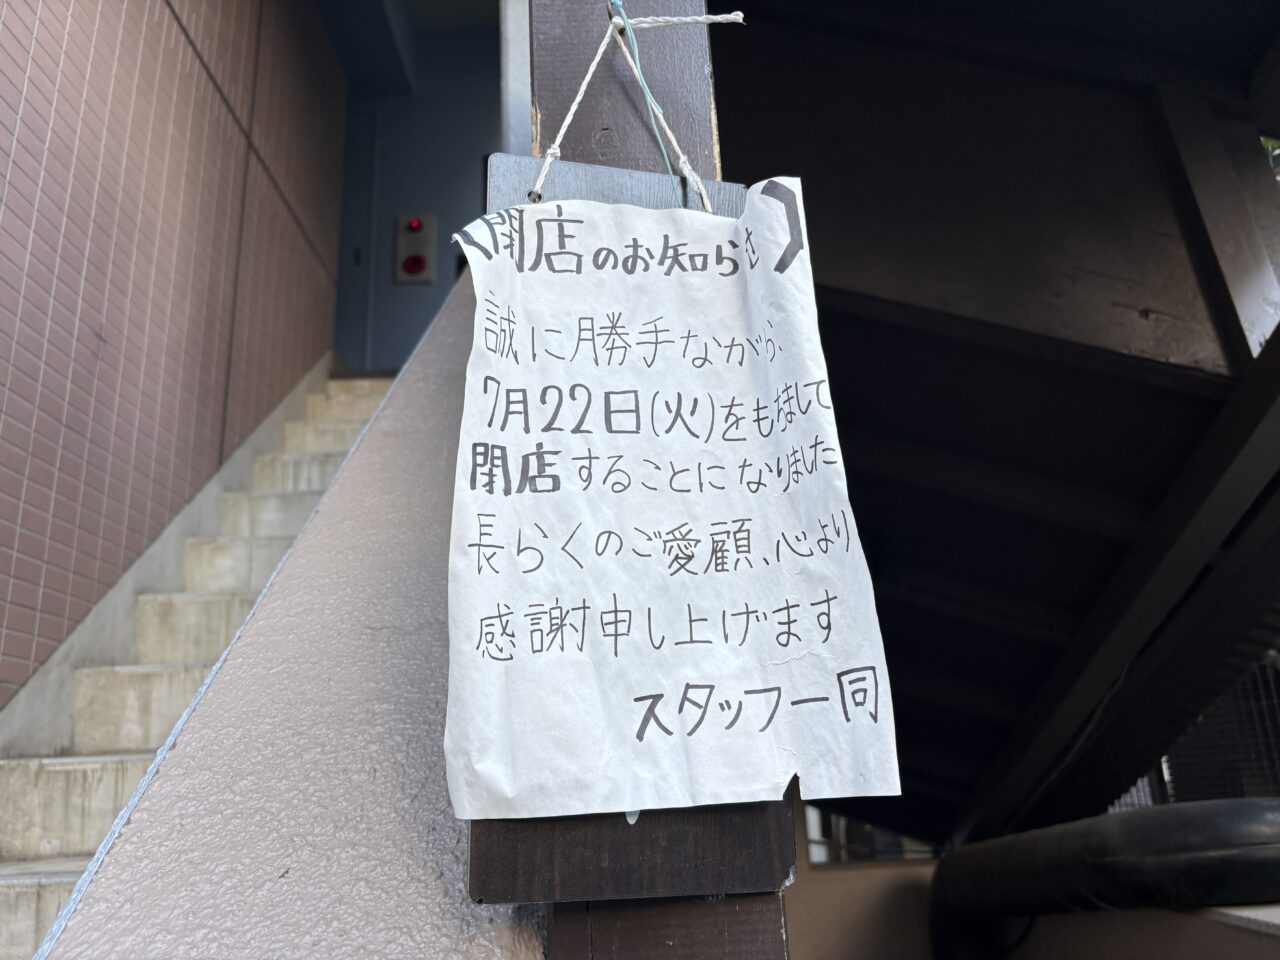 〈閉店のお知らせ〉
誠に勝手ながら、
7月22日(火)をもちまして
閉店することになりました
長らくのご愛顧、心より
感謝申し上げます
スタッフ一同